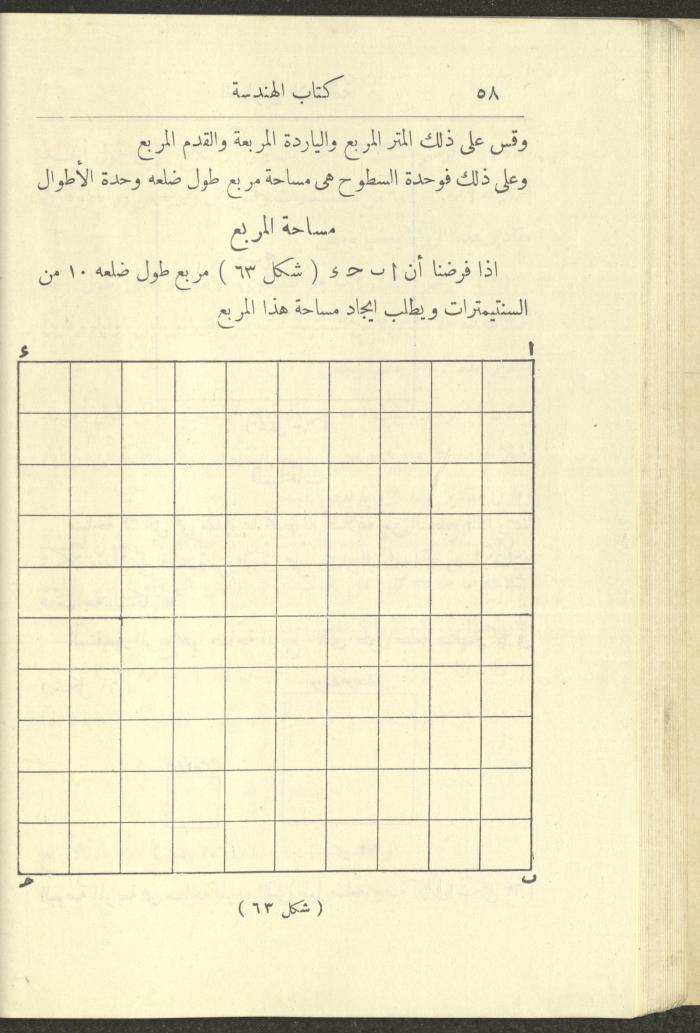 ٥٨ كتاب الهندسة
وقس على ذلك المتر المربع والياردة المربعة والقدم المربع
وعلى ذلك فوحدة السطوح هى مساحة مربع طول ضلعه وحدة الأطوال
مساحة المربع
اذا فرضنا أن ا ب ح ء ( شكل ٦٣ ) مربع طول ضلعه ١٠ من
السنتيمترات ويطلب ايجاد مساحة هذا المربع
ا ء
ب ح
( شكل ٦٣ )